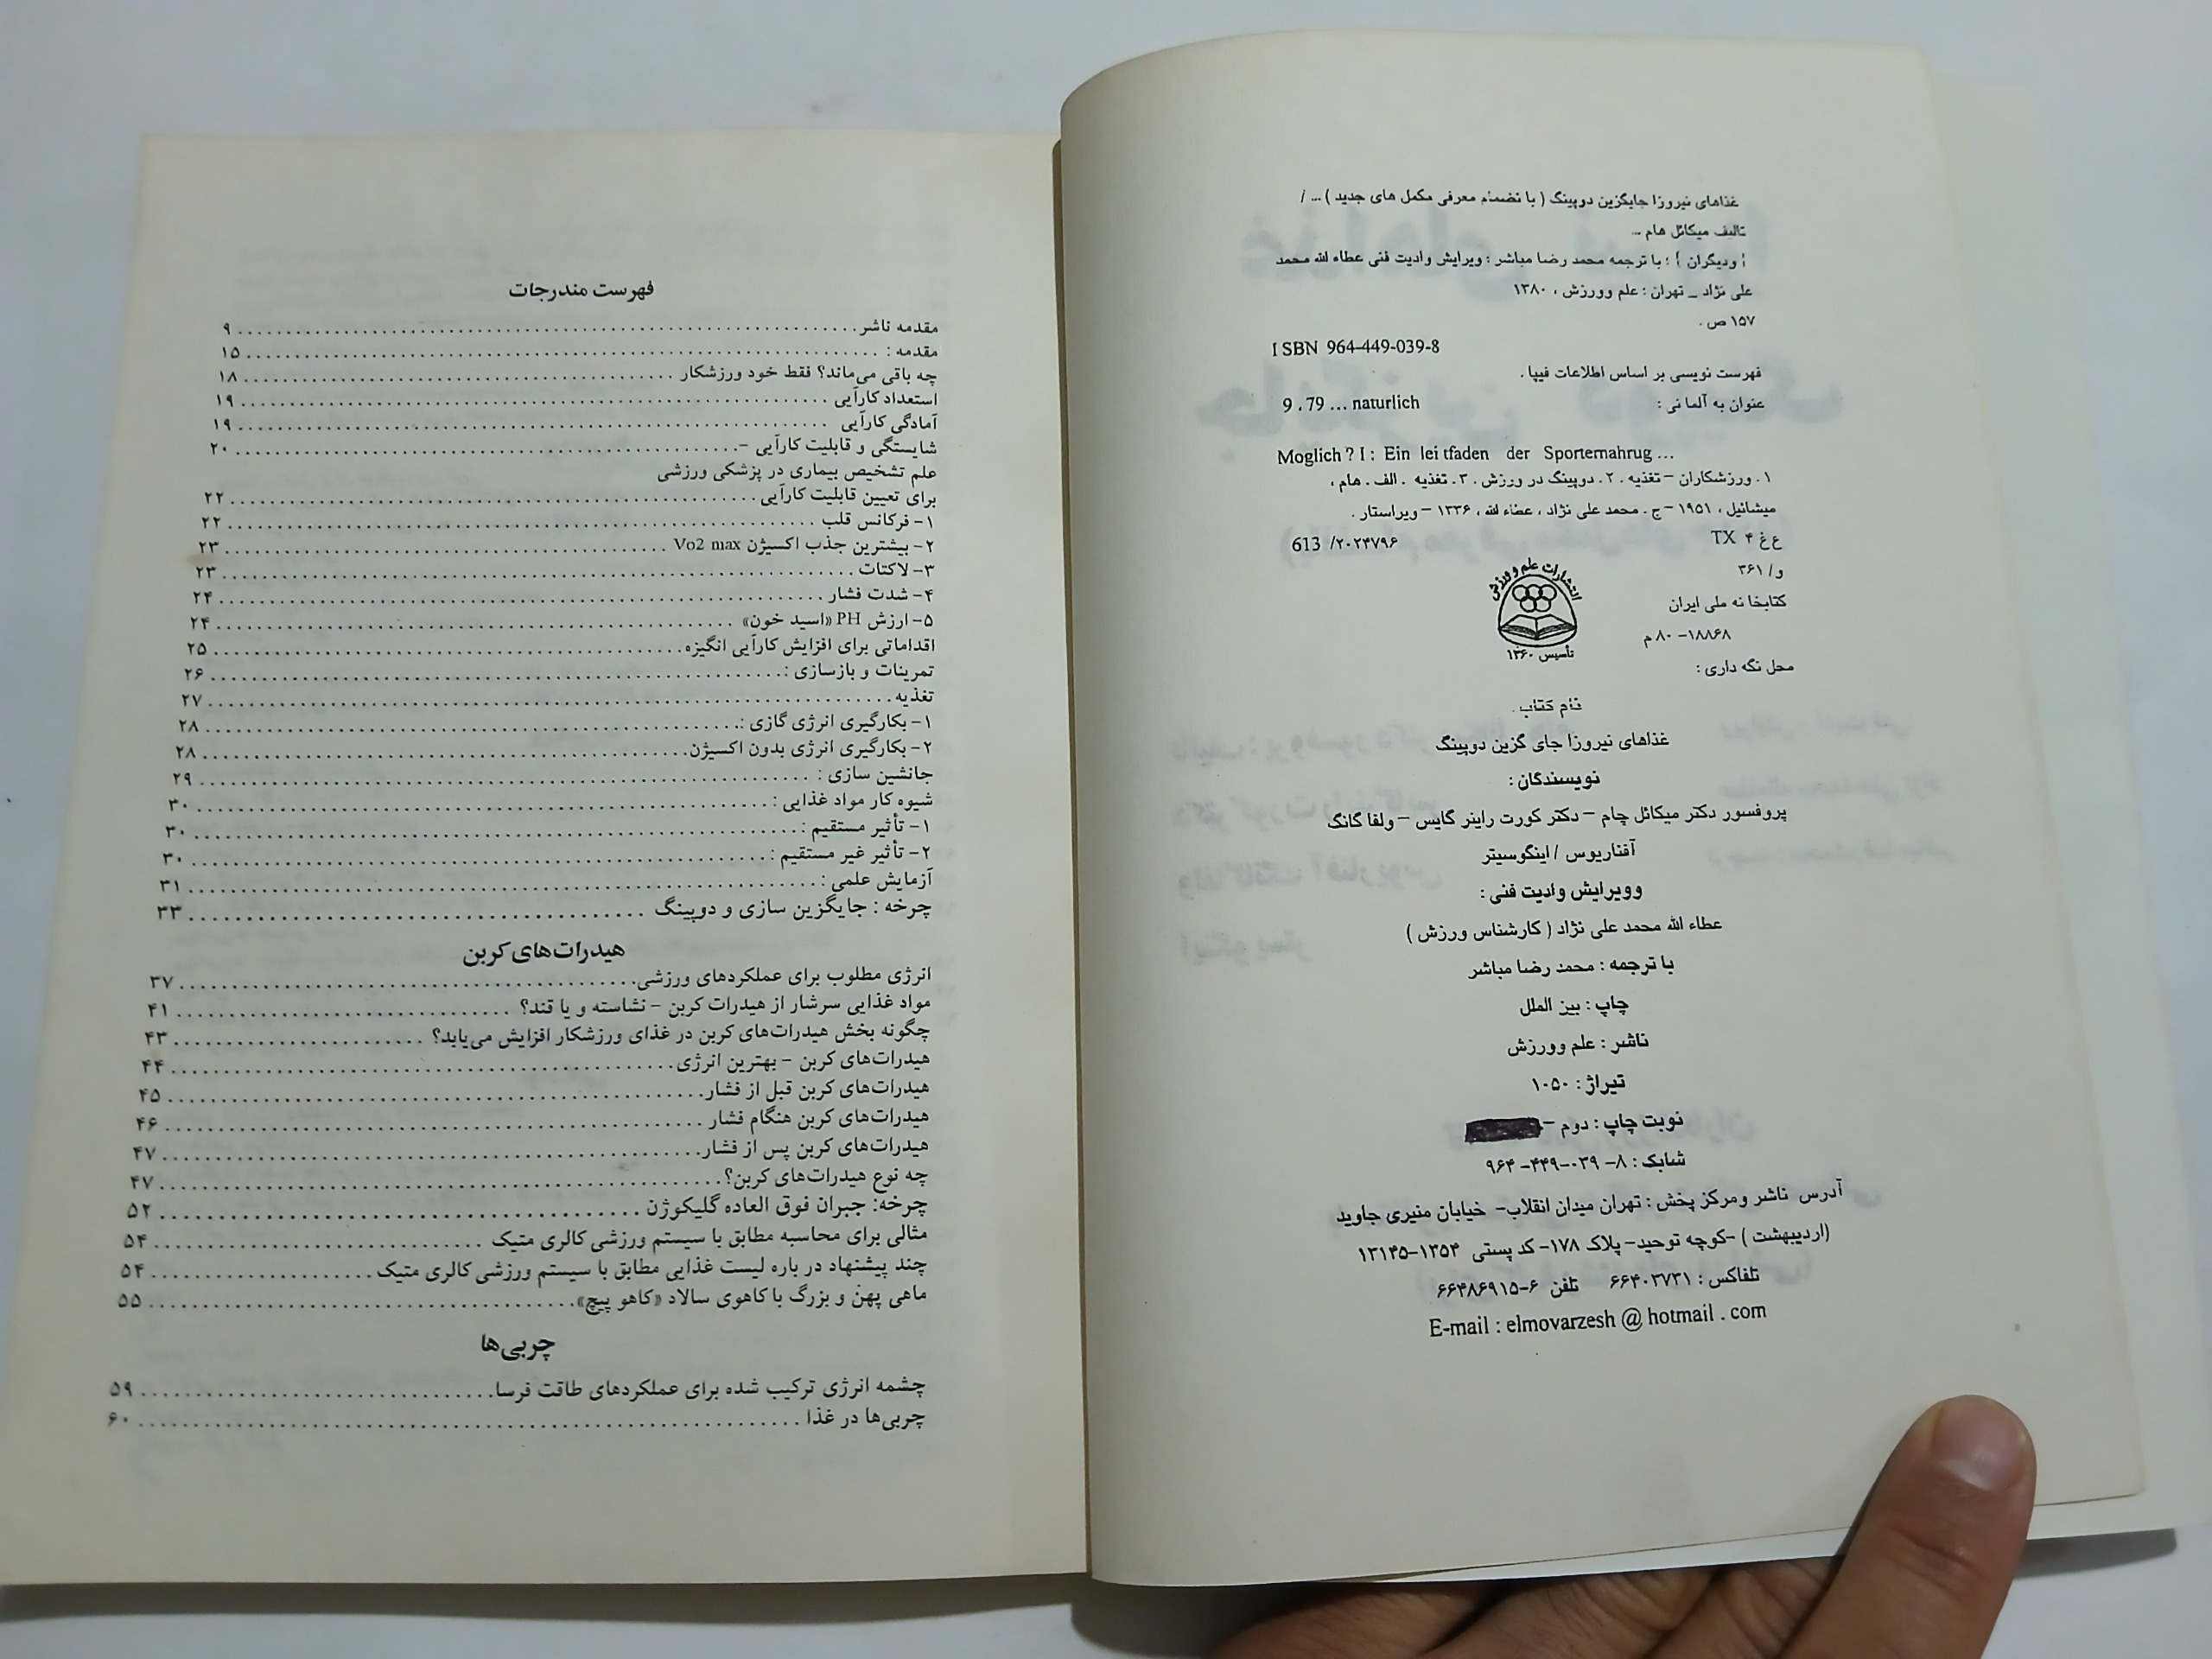 غذاهای نیروزا جایگزین دوپینگ ( با نضمام معرفی مکمل های جدید ) ... /
تالیف میکائل هام ...
[ ودیگران ] ؛ با ترجمه محمد رضا مباشر : ویرایش وادیت فنی عطاء الله محمد
علی نژاد _ تهران : علم وورزش ، ۱۳۸۰
۱۵۷ ص .
ISBN 964-449-039-8
فهرست نویسی بر اساس اطلاعات فیپا .
عنوان به آلمانی : 9 ، 79 ... naturlich
Moglich ? I : Ein lei tfaden der Sporternahrug ...
۱ . ورزشکاران – تغذیه . ۲ . دوپینگ در ورزش . ۳ . تغذیه . الف . هام ،
میشائیل ، ۱۹۵۱ – ج . محمد علی نژاد ، عطاء لله ، ۱۳۳۶ – ویراستار .
۴ غ ع TX 613 /۲۰۲۴۷۹۶
و/ ۳۶۱
کتابخانه ملی ایران
۱۸۸۶۸–۸۰ م
محل نگه داری :
انتشارات علم و ورزش
تأسیس ۱۳۶۰
نام کتاب .
غذاهای نیروزا جای گزین دوپینگ
نویسندگان :
پروفسور دکتر میکائل چام – دکتر کورت راینر گایس – ولفا گانگ
آفناریوس / اینگوسیتر
وویرایش وادیت فنی :
عطاء الله محمد علی نژاد ( کارشناس ورزش )
با ترجمه : محمد رضا مباشر
چاپ : بیز الملل
ناشر : علم وورزش
تیراژ : ۱۰۵۰
نوبت چاپ : دوم –
شابک : ۸– ۰۳۹–۴۴۹– ۹۶۴
آدرس ناشر ومرکز پخش : تهران میدان انقلاب– خیابان منیری جاوید
(اردیبهشت ) –کوچه توحید– پلاک ۱۷۸– کد پستی ۱۳۵۴–۱۳۱۴۵
تلفاکس : ۶۶۴۰۳۷۳۱ تلفن ۶–۶۶۴۸۶۹۱۵
E-mail : elmovarzesh @ hotmail . com
فهرست مندرجات
مقدمه ناشر ........ ۹
مقدمه : ........ ۱۵
چه باقی می‌ماند؟ فقط خود ورزشکار ........ ۱۸
استعداد کارآیی ........ ۱۹
آمادگی کارآیی ........ ۱۹
شایستگی و قابلیت کارآیی – ........ ۲۰
علم تشخیص بیماری در پزشکی ورزشی
برای تعیین قابلیت کارآیی ........ ۲۲
۱– فرکانس قلب ........ ۲۲
۲– بیشترین جذب اکسیژن Vo2 max ........ ۲۳
۳– لاکتات ........ ۲۳
۴– شدت فشار ........ ۲۴
۵– ارزش PH «اسید خون» ........ ۲۴
اقداماتی برای افزایش کارآیی انگیزه ........ ۲۵
تمرینات و بازسازی : ........ ۲۶
تغذیه ........ ۲۷
۱– بکارگیری انرژی گازی : ........ ۲۸
۲– بکارگیری انرژی بدون اکسیژن ........ ۲۸
جانشین سازی : ........ ۲۹
شیوه کار مواد غذایی : ........ ۳۰
۱– تأثیر مستقیم : ........ ۳۰
۲– تأثیر غیر مستقیم : ........ ۳۰
آزمایش علمی : ........ ۳۱
چرخه : جایگزین سازی و دوپینگ ........ ۳۳
هیدرات‌های کربن
انرژی مطلوب برای عملکردهای ورزشی ........ ۳۷
مواد غذایی سرشار از هیدرات کربن – نشاسته و یا قند؟ ........ ۴۱
چگونه بخش هیدرات‌های کربن در غذای ورزشکار افزایش می‌یابد؟ ........ ۴۳
هیدرات‌های کربن – بهترین انرژی ........ ۴۴
هیدرات‌های کربن قبل از فشار ........ ۴۵
هیدرات‌های کربن هنگام فشار ........ ۴۶
هیدرات‌های کربن پس از فشار ........ ۴۷
چه نوع هیدرات‌های کربن؟ ........ ۴۷
چرخه: جبران فوق العاده گلیکوژن ........ ۵۲
مثالی برای محاسبه مطابق با سیستم ورزشی کالری متیک ........ ۵۴
چند پیشنهاد در باره لیست غذایی مطابق با سیستم ورزشی کالری متیک ........ ۵۴
ماهی پهن و بزرگ با کاهوی سالاد «کاهو پیچ» ........ ۵۵
چربی‌ها
چشمه انرژی ترکیب شده برای عملکردهای طاقت فرسا ........ ۵۹
چربی‌ها در غذا ........ ۶۰